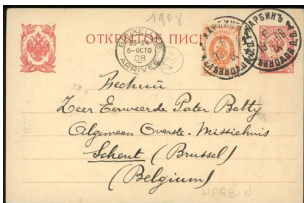 1908
ОТКРЫТОЕ ПИС
BRUXELLES
5-OCTO
08
ARRIVEE
ХАРБИНЪ
Zeer Eerweerde Pater Botty
Algemeen Overste - Missiehuis
Scheut (Brussel)
(Belgium)
HARBIN